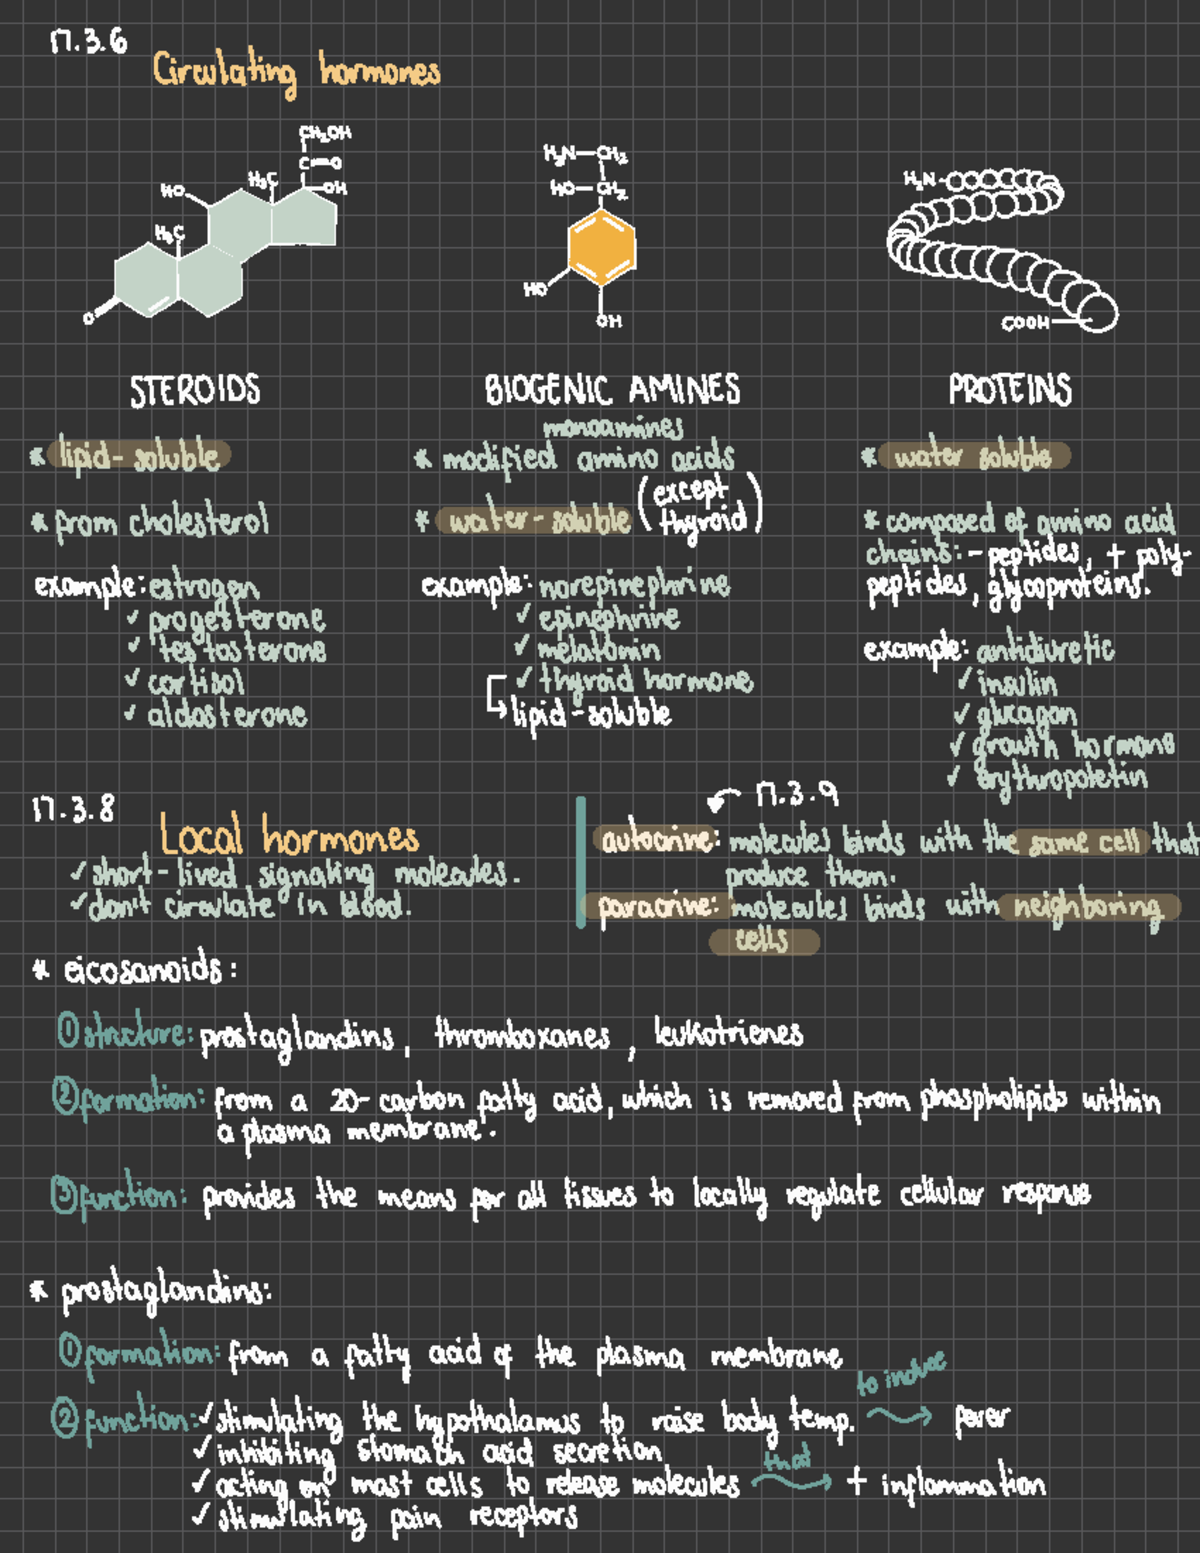 17.3.6
Circulating hormones
CH₂OH
C=O
H₃C
HO
OH
H₃C
O
H₂N-CH₂
HO-CH₂
HO
OH
H₂N-
COOH
STEROIDS
* lipid-soluble
* from cholesterol
example: estrogen
✓ progesterone
✓ testosterone
✓ cortisol
✓ aldosterone
BIOGENIC AMINES
monoamines
* modified amino acids
* water-soluble (except thyroid)
example: norepinephrine
✓ epinephrine
✓ melatonin
✓ thyroid hormone
↳ lipid-soluble
PROTEINS
* water soluble
* composed of amino acid
chains: - peptides, + poly-
peptides, glycoproteins.
example: antidiuretic
✓ insulin
✓ glucagon
✓ growth hormone
✓ erythropoietin
17.3.8
Local hormones
✓ short-lived signaling molecules.
✓ don't circulate in blood.
17.3.9
autocrine: molecules binds with the same cell that
produce them.
paracrine: molecules binds with neighboring
cells
* eicosanoids:
① structure: prostaglandins, thromboxanes, leukotrienes
② formation: from a 20-carbon fatty acid, which is removed from phospholipids within
a plasma membrane.
③ function: provides the means for all tissues to locally regulate cellular response
* prostaglandins:
① formation: from a fatty acid of the plasma membrane
② function: ✓ stimulating the hypothalamus to raise body temp. to induce → fever
✓ inhibiting stomach acid secretion
✓ acting on mast cells to release molecules that → + inflammation
✓ stimulating pain receptors